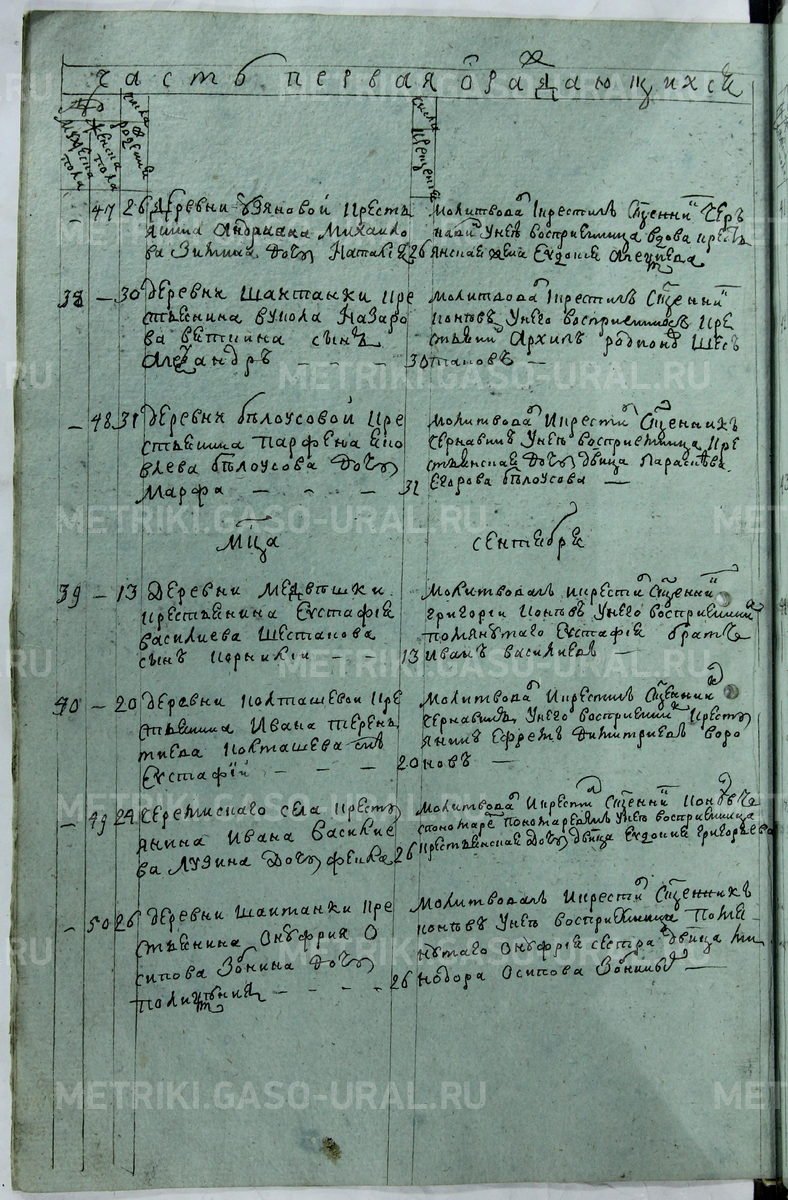 часть первая о раждающихся
мужеска пола
женска пола
числа рождения
числа крещения
47 26 Деревни Узяновой кресть
янина Андриана Михайло
ва Зимина дочь Наталия 26
молитвовал и крестилъ сщенникъ Чер
навин у нея восприемница вдова кресть
янская жена Евдокия Алексиева
38 – 30 Деревни Шаитанки кре
стьянина вукола Назаро
ва вятчина сынъ
Александръ – – – 30
молитвовал и крестилъ сщенникъ
Поповъ у него восприемникъ кре
стьянинъ Архипъ родионов Шес
таковъ –
– 48 31 Деревни бѣлоусовой кре
стьянина Парфена Яко
влева бѣлоусова дочь
Марфа – – – 31
молитвовал и крестил сщенникъ
Чернавинъ у нея восприемница кре
стьянская дочь двица Параскева
Егорова бѣлоусова –
Мца сентября
39 – 13 Деревни Медвѣшки
крестьянина Евстафия
василиева Шестакова
сынъ Корнилии – – 13
молитвовалъ и крестил сщенникъ
григорий Поповъ у него восприемникъ
помянутаго Евстафия братъ
Иванъ василиевъ –
40 – 20 Деревни Колташевой кре
стьянина Ивана Терень
тиева Колташева снъ
Евстафий – – – 20
молитвовал и крестилъ сщенникъ
Чернавинъ у него восприемникъ кресть
янинъ Ефремъ Димитриевъ воро
новъ –
– 49 24 Черемискаго села кресть
янина Ивана Василие
ва Лузина дочь Фекла 26
молитвовал и крестил сщенникъ Поповъ
с пономаремъ Пономаревымъ у нея восприемница
крестьянская дочь двица Евдокия григорьева
– 50 26 Деревни Шаитанки кре
стьянина Онуфрия О
сипова Зонина дочь
Поликсения – – – – 26
молитвовалъ и крестил сщенникъ
Поповъ у нея восприемница помя
нутаго Онуфрия сестра двица Ми
нодора Осипова Зонина –
METRIKI.GASO-URAL.RU